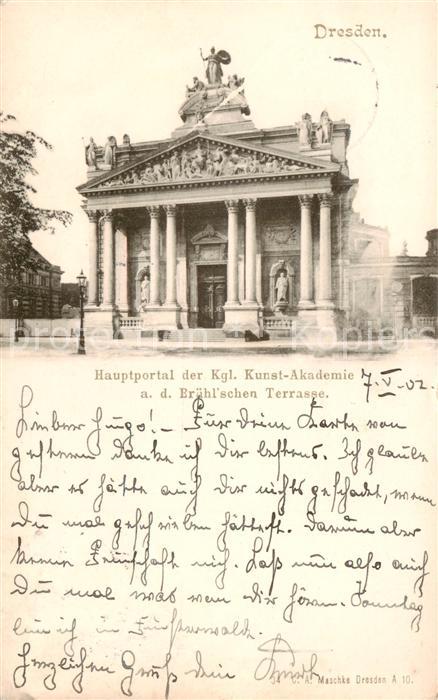 Dresden.
Hauptportal der Kgl. Kunst-Akademie
a. d. Brühl'schen Terrasse.
7. V. 02.
Lieber Hugo! – Für Deine Karte von
gestern danke ich Dir bestens. Ich glaube
aber es hätte auch Dir nichts geschadet, wenn
Du mal geschrieben hättest. Darum aber
keine Feindschaft nich. Laß nun also auch
Du mal was von dir hören. Sonntag
bin ich in Finsterwalde.
Herzlichen Gruß dein Kurt
C. A. Maschke Dresden A 10.